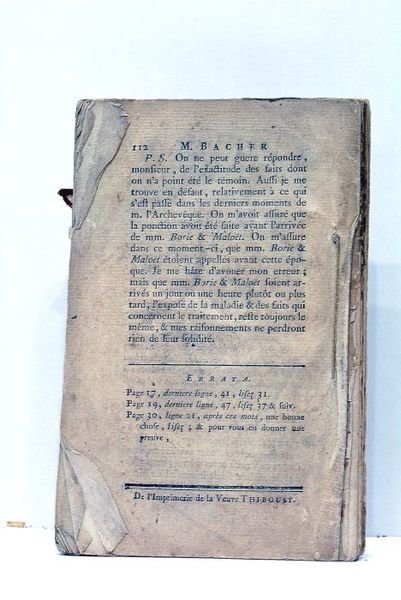 112 M. BACHER
P. S. On ne peut guere répondre,
monsieur, de l'exactitude des faits dont
on n'a point été le témoin. Aussi je me
trouve en défaut, relativement à ce qui
s'est passé dans les derniers momens de
m. l'Archevêque. On m'avoit assuré que
la ponction avoit été faite avant l'arrivée
de mm. Borie & Maloët. On m'assure
dans ce moment-ci, que mm. Borie &
Maloët étoient appellés avant cette épo-
que. Je me hâte d'avouer mon erreur;
mais que mm. Borie & Maloët soient ar-
rivés un jour ou une heure plutôt ou plus
tard, l'exposé de la maladie & des faits qui
concernent le traitement, reste toujours le
même, & mes raisonnemens ne perdront
rien de leur solidité.
ERRATA.
Page 17, derniere ligne, 41, lisez 31.
Page 19, derniere ligne, 47, lisez 37 & suiv.
Page 30, ligne 21, après ces mots, une bonne
chose, lisez; & pour vous en donner une
preuve,
De l'Imprimerie de la Veuve THIBOUST.